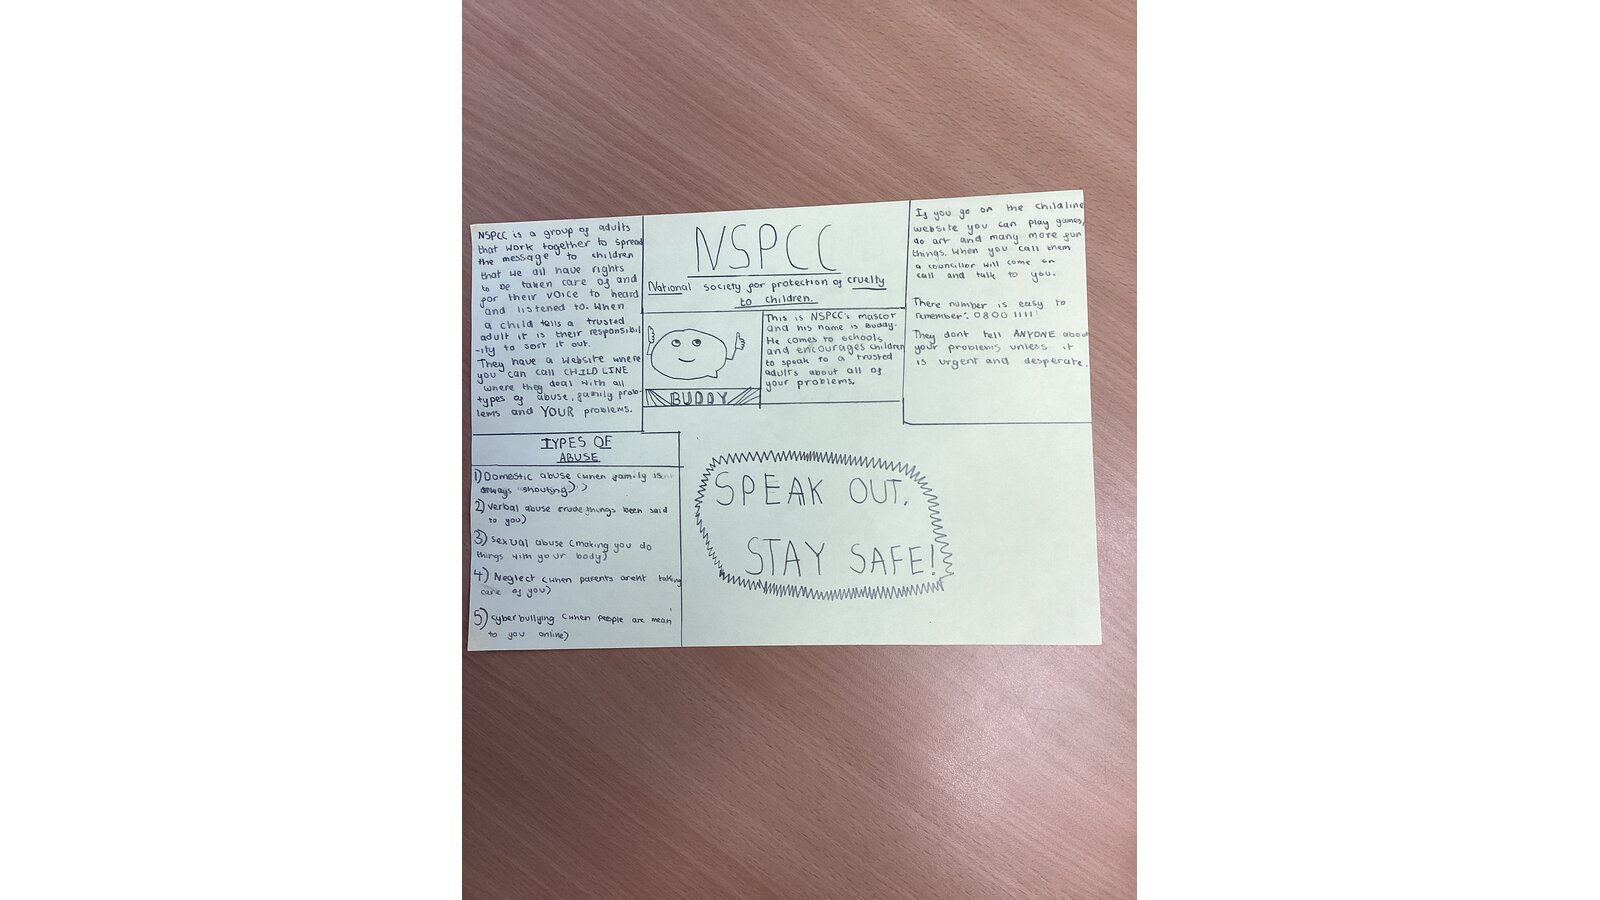 NSPCC is a group of adults
that work together to spread
the message to children
that we all have rights
to be taken care of and
for their voice to heard
and listened to. When
a child tells a trusted
adult it is their responsibil
-ity to sort it out.
They have a website where
you can call CHILD LINE
where they deal with all
types of abuse, family prob-
lems and YOUR problems.
NSPCC
National society for protection of cruelty
to children.
BUDDY
This is NSPCC's mascot
and his name is Buddy.
He comes to schools
and encourages children
to speak to a trusted
adults about all of
your problems.
If you go on the childline
website you can play games,
do art and many more fun
things. When you call them
a councillor will come on
call and talk to you.
There number is easy to
remember: 0800 1111!
They dont tell ANYONE about
your problems unless it
is urgent and desperate.
TYPES OF
ABUSE
1) Domestic abuse (when family is
always shouting)
2) verbal abuse crude things been said
to you)
3) sexual abuse (making you do
things with your body)
4) Neglect (when parents arent taking
care of you)
5) cyberbullying (when people are mean
to you online)
SPEAK OUT,
STAY SAFE!